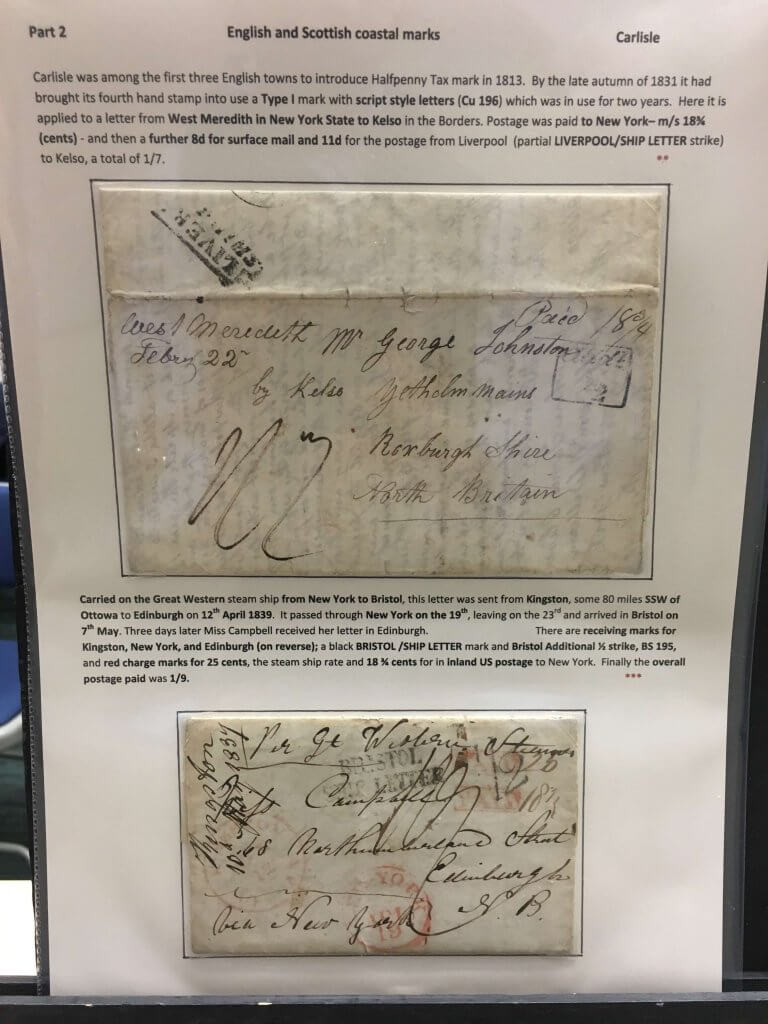 Part 2 English and Scottish coastal marks Carlisle
Carlisle was among the first three English towns to introduce Halfpenny Tax mark in 1813. By the late autumn of 1831 it had
brought its fourth hand stamp into use a Type I mark with script style letters (Cu 196) which was in use for two years. Here it is
applied to a letter from West Meredith in New York State to Kelso in the Borders. Postage was paid to New York– m/s 18¾
(cents) - and then a further 8d for surface mail and 11d for the postage from Liverpool (partial LIVERPOOL/SHIP LETTER strike)
to Kelso, a total of 1/7. **
LIVER
Paid 18¾
West Meredith Mr George Johnston
Febry 22
by Kelso Yetholm Mains
1/7 Roxburgh Shire
North Britain
Carried on the Great Western steam ship from New York to Bristol, this letter was sent from Kingston, some 80 miles SSW of
Ottowa to Edinburgh on 12th April 1839. It passed through New York on the 19th, leaving on the 23rd and arrived in Bristol on
7th May. Three days later Miss Campbell received her letter in Edinburgh. There are receiving marks for
Kingston, New York, and Edinburgh (on reverse); a black BRISTOL /SHIP LETTER mark and Bristol Additional ½ strike, BS 195,
and red charge marks for 25 cents, the steam ship rate and 18 ¾ cents for in inland US postage to New York. Finally the overall
postage paid was 1/9. ***
Per Gt Western Steamer
BRISTOL
LETTER
Miss Campbell
68 Northumberland Street
Edinburgh
N.B.
via New York
YORK
19
Kingston
1839